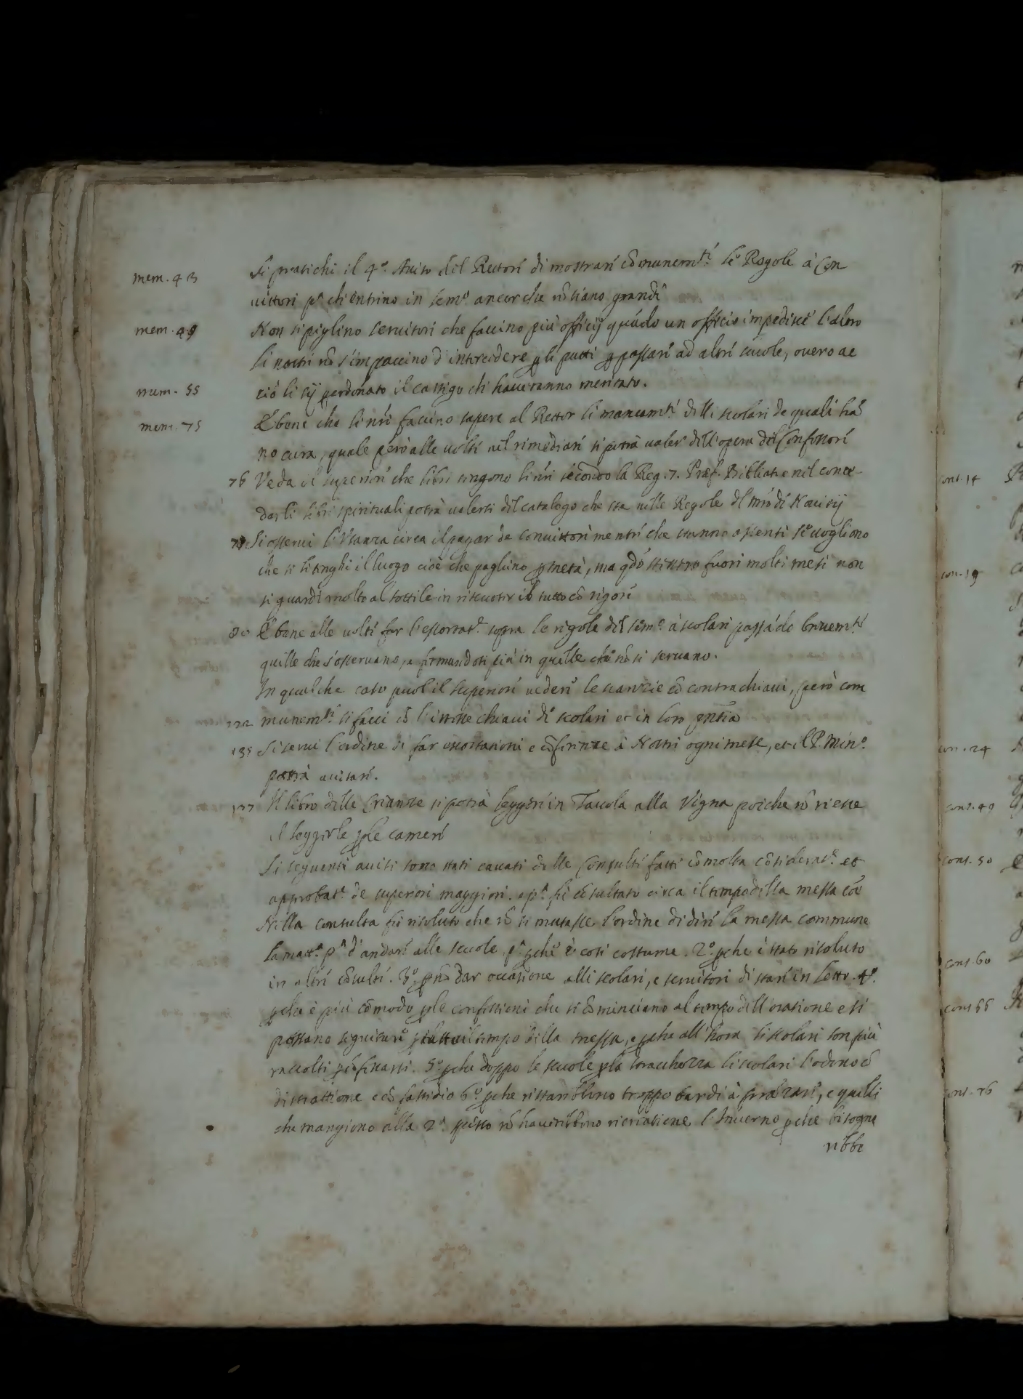 mem. 43 Si pratichi il 4.º Aviso del Rettori di mostrari cõmunem.te le Regole à Con
vittori p.ª ch'entrino in sem.º ancorche nõ siano grandi
mem. 49 Non si piglino servitori che faccino più officij quãdo un officio impedisce l'altro
li nostri nõ s'impaccino d'intercedere p̱ li putti p̱ passarl' ad altri scuole, overo ac
num. 55 ciò li sij perdonato il castigo ch'haveranno meritato.
mem. 75 È bene che li nri faccino sapere al Rettor li mancam.ti delli scolari de quali hã
no cura, quale però alle volte nel rimediari si potrà valer dell'opera del Confessori
76 Veda il superiori che libri tengono li nri secondo la Reg. 7. Præf. Bibliot. e nel conce-
derli libri spirituali potrà valersi del catalogo che sta nelle Regole del mrõ di Novitij
78 Si osservi l'usanza circa il pagar de convittori mentri che stanno assenti se vogliono
che se li tenghi il luogo cioè che paghino p̱ metà, ma qdõ stissero fuori molti mesi non
si guardi molto al sottile in riscuoter il tutto cõ rigori
80 È bene alle volte far l'essortat.e sopra le regole del sem.º à scolari passãdo brevem.te
quelle che s'osservano, e firmandosi più in quelle che nõ si servano.
In qualche caso puol il superiori vederi le scanzie cõ contrachiavi, però com
122 munem.te si facci cõ l'istesse chiavi di scolari et in loro pñtia
135 Si servi l'ordine di far essortationi e cõferenze à Nostri ogni mese, et il P. Min.º
potrà avisari.
137 Il libro delle Creanze si potrà leggeri in Tavola alla Vigna poiche nõ riesce
il leggerle p̱ le cameri
Li seguenti avisi sono stati cavati dalle Consulti fatti cõ molta cõsiderat.e et
approbat.e de superiori maggiori. e p.ª fù cõsultato circa il tempo della messa che
Nella consulta fù risoluto che nõ si mutasse l'ordine di diri la messa commune
la matt.ª p.ª d'andari alle scuole. p.º p̱che è cosi costume. 2.º p̱che è stato risoluto
in altri cõsulti. 3.º p̱ nõ dar occasione alli scolari, e servitori di stari in letto. 4.º
p̱che è più cõmodo p̱ le confessioni che si cõminciano al tempo dell'oratione e si
possono seguitari p̱ tutto il tempo della messa, e p̱che all'hora li scolari son più
raccolti p̱ cõfessarsi. 5.º p̱che doppo le scuole p̱ la stracchezza li scolari l'odono cõ
distrattione e cõ fastidio 6.º p̱che ristariblino troppo tardi à pranzari, e quelli
che mangiono alla 2.ª nõ haveribbino ricreatione l'Inverno p̱che bisogne
ribbe
cons. 14
con. 19
con. 24
cons. 49
cons. 50
cons. 60
cons. 65
cons. 76